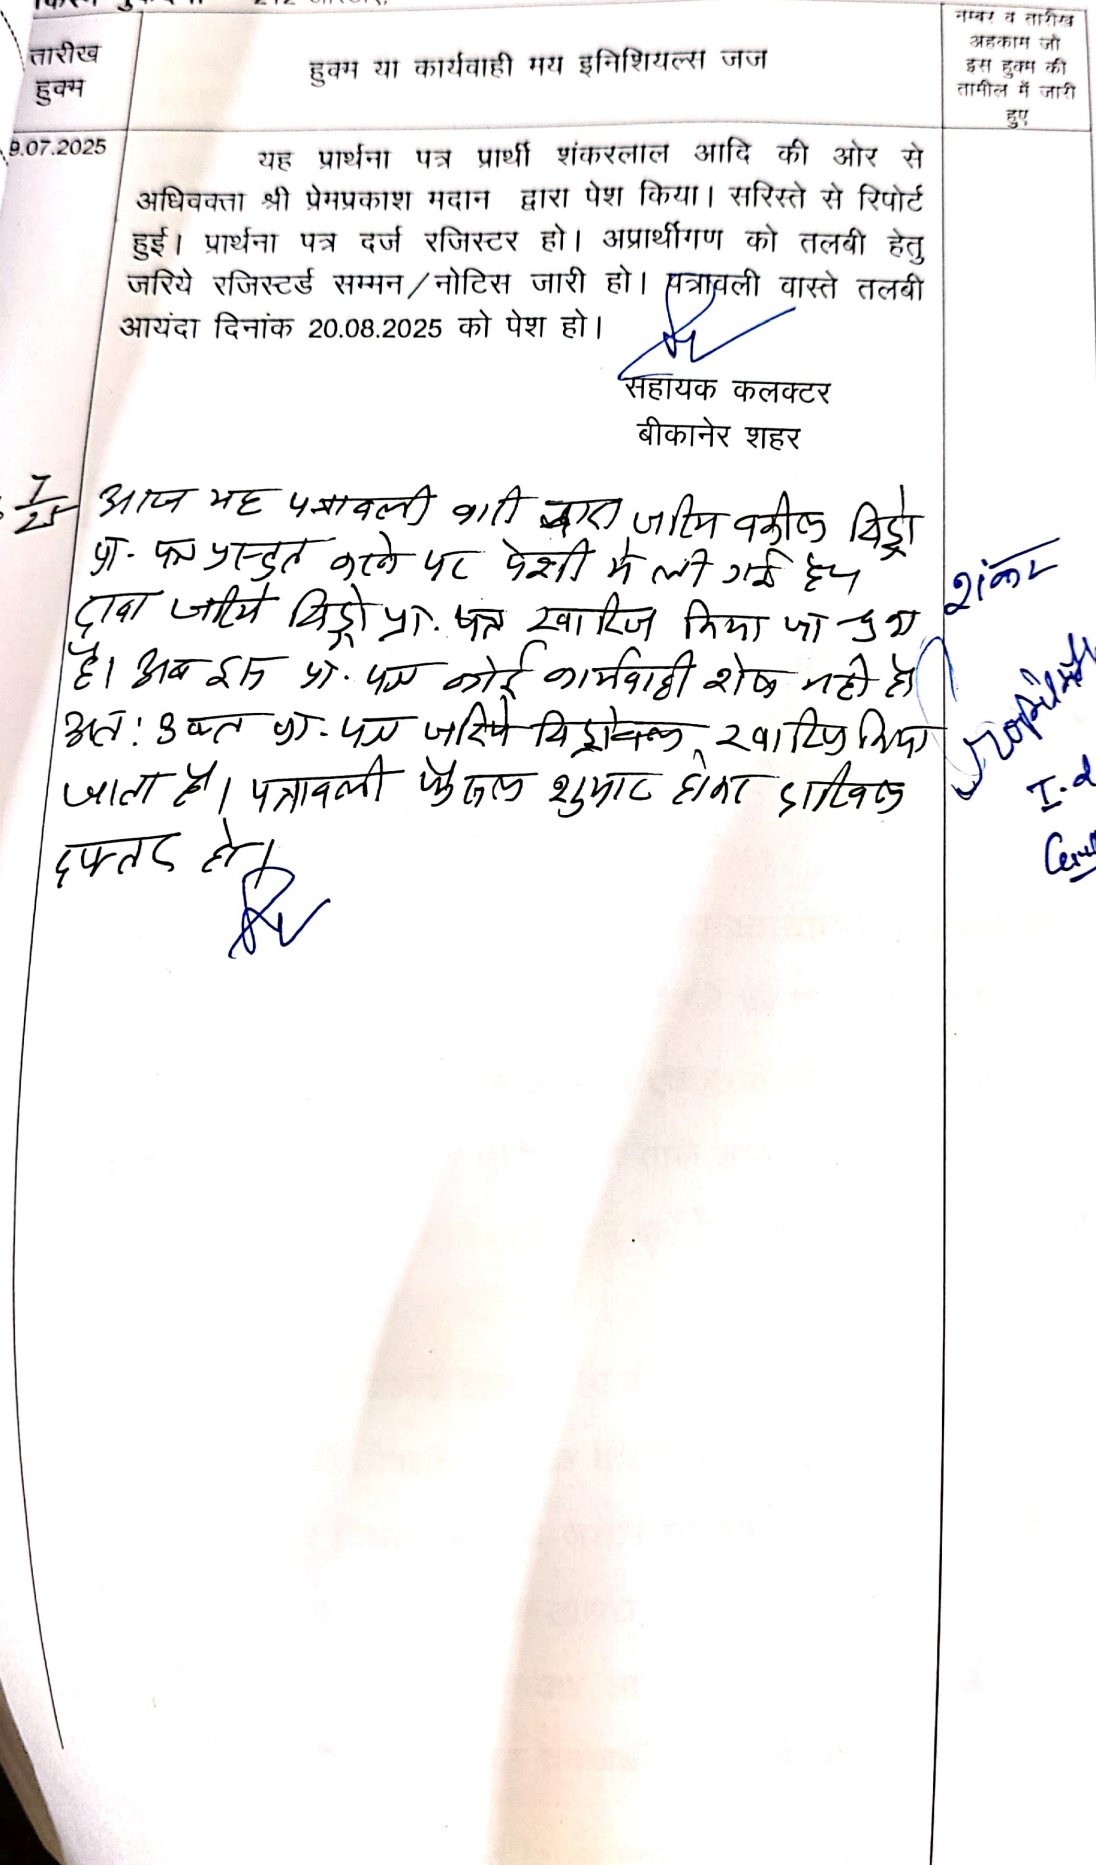 212 आरटीए,
तारीख
हुक्म
हुक्म या कार्यवाही मय इनिशियल्स जज
नम्बर व तारीख
अहकाम जो
इस हुक्म की
तामील में जारी
हुए
9.07.2025
यह प्रार्थना पत्र प्रार्थी शंकरलाल आदि की ओर से
अधिवक्ता श्री प्रेमप्रकाश मदान द्वारा पेश किया। सरिस्ते से रिपोर्ट
हुई। प्रार्थना पत्र दर्ज रजिस्टर हो। अप्रार्थीगण को तलबी हेतु
जरिये रजिस्टर्ड सम्मन/नोटिस जारी हो। पत्रावली वास्ते तलबी
आयंदा दिनांक 20.08.2025 को पेश हो।
सहायक कलक्टर
बीकानेर शहर
7/25 आज यह पत्रावली वादी द्वारा जरिये वकील विड्रो
प्रा. पत्र प्रस्तुत करने पर पेशी में ली गई
दावा जरिये विड्रो प्रा. पत्र खारिज किया जा चुका
है। अब इस प्रा. पत्र कोई कार्यवाही शेष नही है
अत: उक्त प्रा. पत्र जरिये खारिज किया
जाता है। पत्रावली फैसल शुमार होकर दाखिल
दफ्तर हो।
शंकर
I.d